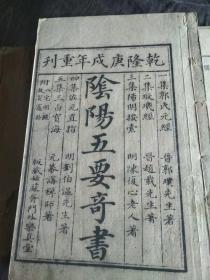 乾隆庚戌年重刊
一集郭氏元經 晉郭璞先生著
二集璇璣經 晉趙載先生著
三集陽明按索 明陳復心老人著
陰陽五要奇書
四集佐元直指 明劉伯溫先生著
五集三白寶海 元幕講禪師著
附八宅明鏡
板藏姑蘇 門內樂真堂